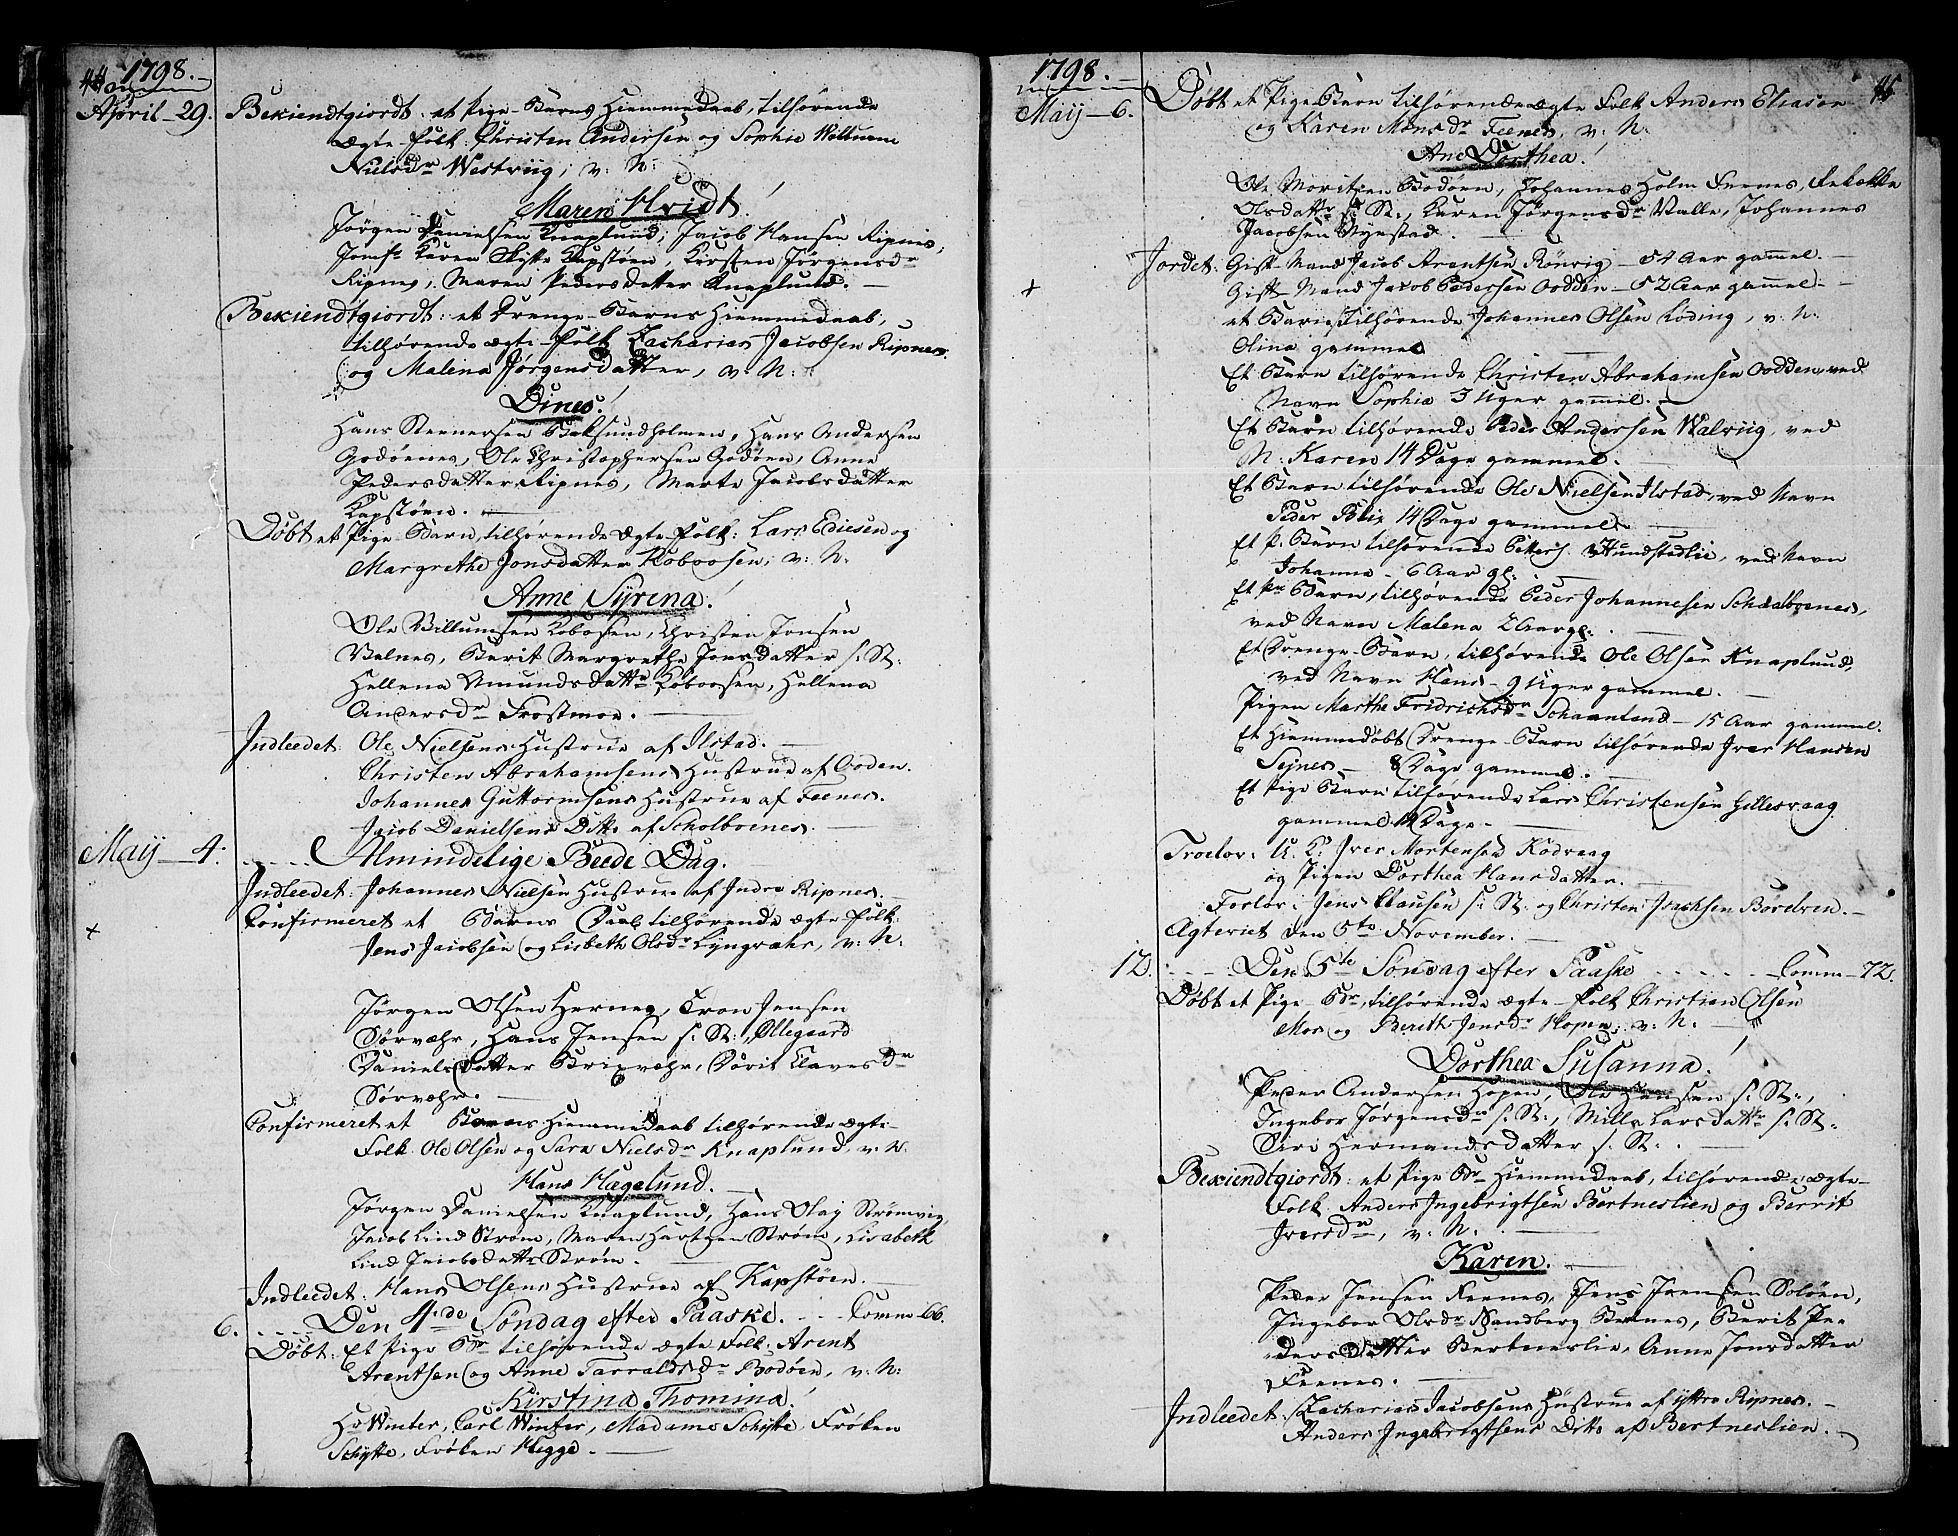 44 1798.
April 29. Bekiendtgiordt: et Pige-Barns Hiemmedaab, tilhørende
ægte-Folk: Christen Andersen og Sophie Willums
Nielsdr Westviig; v: N:
Maren Hvidt!
Jørgen Danielsen Knaplund; Jacob Hansen Ripnes;
Jomfr Karen Schytte Kapstøen, Kirsten Jørgensdr
Ripnes; Maren Pedersdatter Knaplund.
Bekiendtgiordt: et Drenge-Barns Hiemmedaab,
tilhørende ægte-Folk Zacharias Jacobsen Ripnes
og Malena Jørgensdatter, v: N:
Dines!
Hans Steenersen Bolsundholmen, Hans Andersen
Godøenes, Ole Christophersen Godøen, Anne
Pedersdatter Ripnes, Marte Jacobsdatter
Kapstøen.
Døbt et Pige-Barn tilhørende ægte-Folk: Lars Ediesen og
Margrethe Jonsdatter Koboosen; v: N:
Anne Syrena!
Ole Villumsen Kobosen, Christen Jonsen
Valnes, Berit Margrethe Jonsdatter s: St:
Hellena Amundsdattr Koboosen, Hellena
Andersdr Frostmoe.
Indleedet: Ole Nielsens Hustrue af Ilstad.
Christen Abrahamsens Hustrue af Oodden.
Johannes Guttormsens Hustrue af Feenes.
Jacob Danielsens Ditto af Scholboenes.
Maij 4. Almindelige Beede Dag.
Indleedet: Johannes Nielsen Hustrue af Indre Ripnes.
Confirmeret et Barns Daab tilhørende ægte Folk:
Jens Jacobsen og Lisbeth Olsdr Lyngvæhr, v: N:
Jørgen Olsen Hernes, Tron Jensen
Sørvæhr, Hans Jensen s: St:, Ollegaard
Daniels Datter Brixvæhr, Dorit Clavesdr
Sørvæhr.
Confirmeret et Barns Hiemmedaab tilhørende ægte-
Folk Ole Olsen og Sara Nielsdr Knaplund, v: N:
Hans Hagelund.
Jørgen Danielsen Knaplund, Hans Olaj Strømvig
Jacob Lind Strøm, Maren Hartzen Strøm, Lisabeth
Lind Jacobsdattr Strøm.
Indleedet: Hans Olsens Hustrue af Kapstøen.
6. Den 4de Søndag efter Paaske. Comm-66.
Døbt: Et Pige Br tilhørende ægte Folk: Arent
Arentsen og Anne Tarraldsdr Bodøen, v: N:
Kirstina Thomina!
Hr Winter, Carl Winter, Madame Schytte, Frøken
Schytte, Frøken Hegge.
1798. 45
Maij 6. Døbt et Pige-Barn tilhørende ægte Folk Anders Eliasen
og Karen Monsdr Feenes, v: N:
Ane Dorthea!
Ole Moritzen Bodøen, Johannes Holm Feenes, Rebekka
Olsdattr s: St:, Karen Jørgensdr Valle, Johannes
Jacobsen Nyestad.
Jordet: Gift-Mand Jacob Arentsen Rönvig - 54 Aar gammel.
Gift-Mand Jacob Pedersen Oodden - 52 Aar gammel.
et Barn tilhørende Johannes Olsen Løding, v: N:
Olina gammel
Et Barn tilhørende Christen Abrahamsen Oodden, ved
Navn Sophia 3 Uger gammel.
Et Barn tilhørende Peder Andersen Walviig, ved
N: Karen 14 Dage gammel.
Et Barn tilhørende Ole Nielsen Ilstad, ved Navn
Peder Blix 14 Dage gammel.
Et P: Barn tilhørende Hundstadlie, ved Navn
Johanna - 6 Aar gl:
Et Pe Barn, tilhørende Peder Johannesen Schaalboenes,
ved Navn Malena 2 Aar gl:
Et Drenge-Barn, tilhørende Ole Olsen Knaplund,
ved Navn Hans - 9 Uger gammel.
Pigen Marthe Fridrichsdr Schaanland - 15 Aar gammel.
Et Hiemmedøbt Drenge-Barn tilhørende Iver Hansen
Seines - 8 Dage gammel.
Et Pige Barn tilhørende Lars Christensen Gillesvaag
gammel 12 Dage.
Troelov: U: K: Iver Mortensen Kodvaag
og Pigen Dorthea Hansdatter.
Forlov: Jens Clausen s: St: og Christen Isachsen Børelven.
Ægteviet den 5te November.
12. Den 5te Søndag efter Paaske Comm-72.
Døbt et Pige-Br, tilhørende ægte-Folk Christian Olsen
Moe og Berith Jensdr Hopen, v: N:
Dorthea Susanna!
Peder Andersen Hopen, Ole Hansen s: St:,
Ingebor Jørgensdr s: St:, Mille Larsdattr s: St:
Siri Hermandsdatter s: St:
Bekiendtgiordt: et Pige Br Hiemmedaab, tilhørende ægte-
Folk: Anders Ingebrigtsen Bertneslien og Berrit
Iversdr, v: N:
Karen.
Peder Jensen Feenes, Jens Jensen Soløen,
Ingebor Olsdr Sandberg Bernes, Berit Pe-
dersdatter Bertneslie, Anne Jonsdatter
Feenes.
Indleedet: Zacharias Jacobsens Hustrue af yttre Ripnes.
Anders Ingebrigtsens Ditto af Bertneslien.